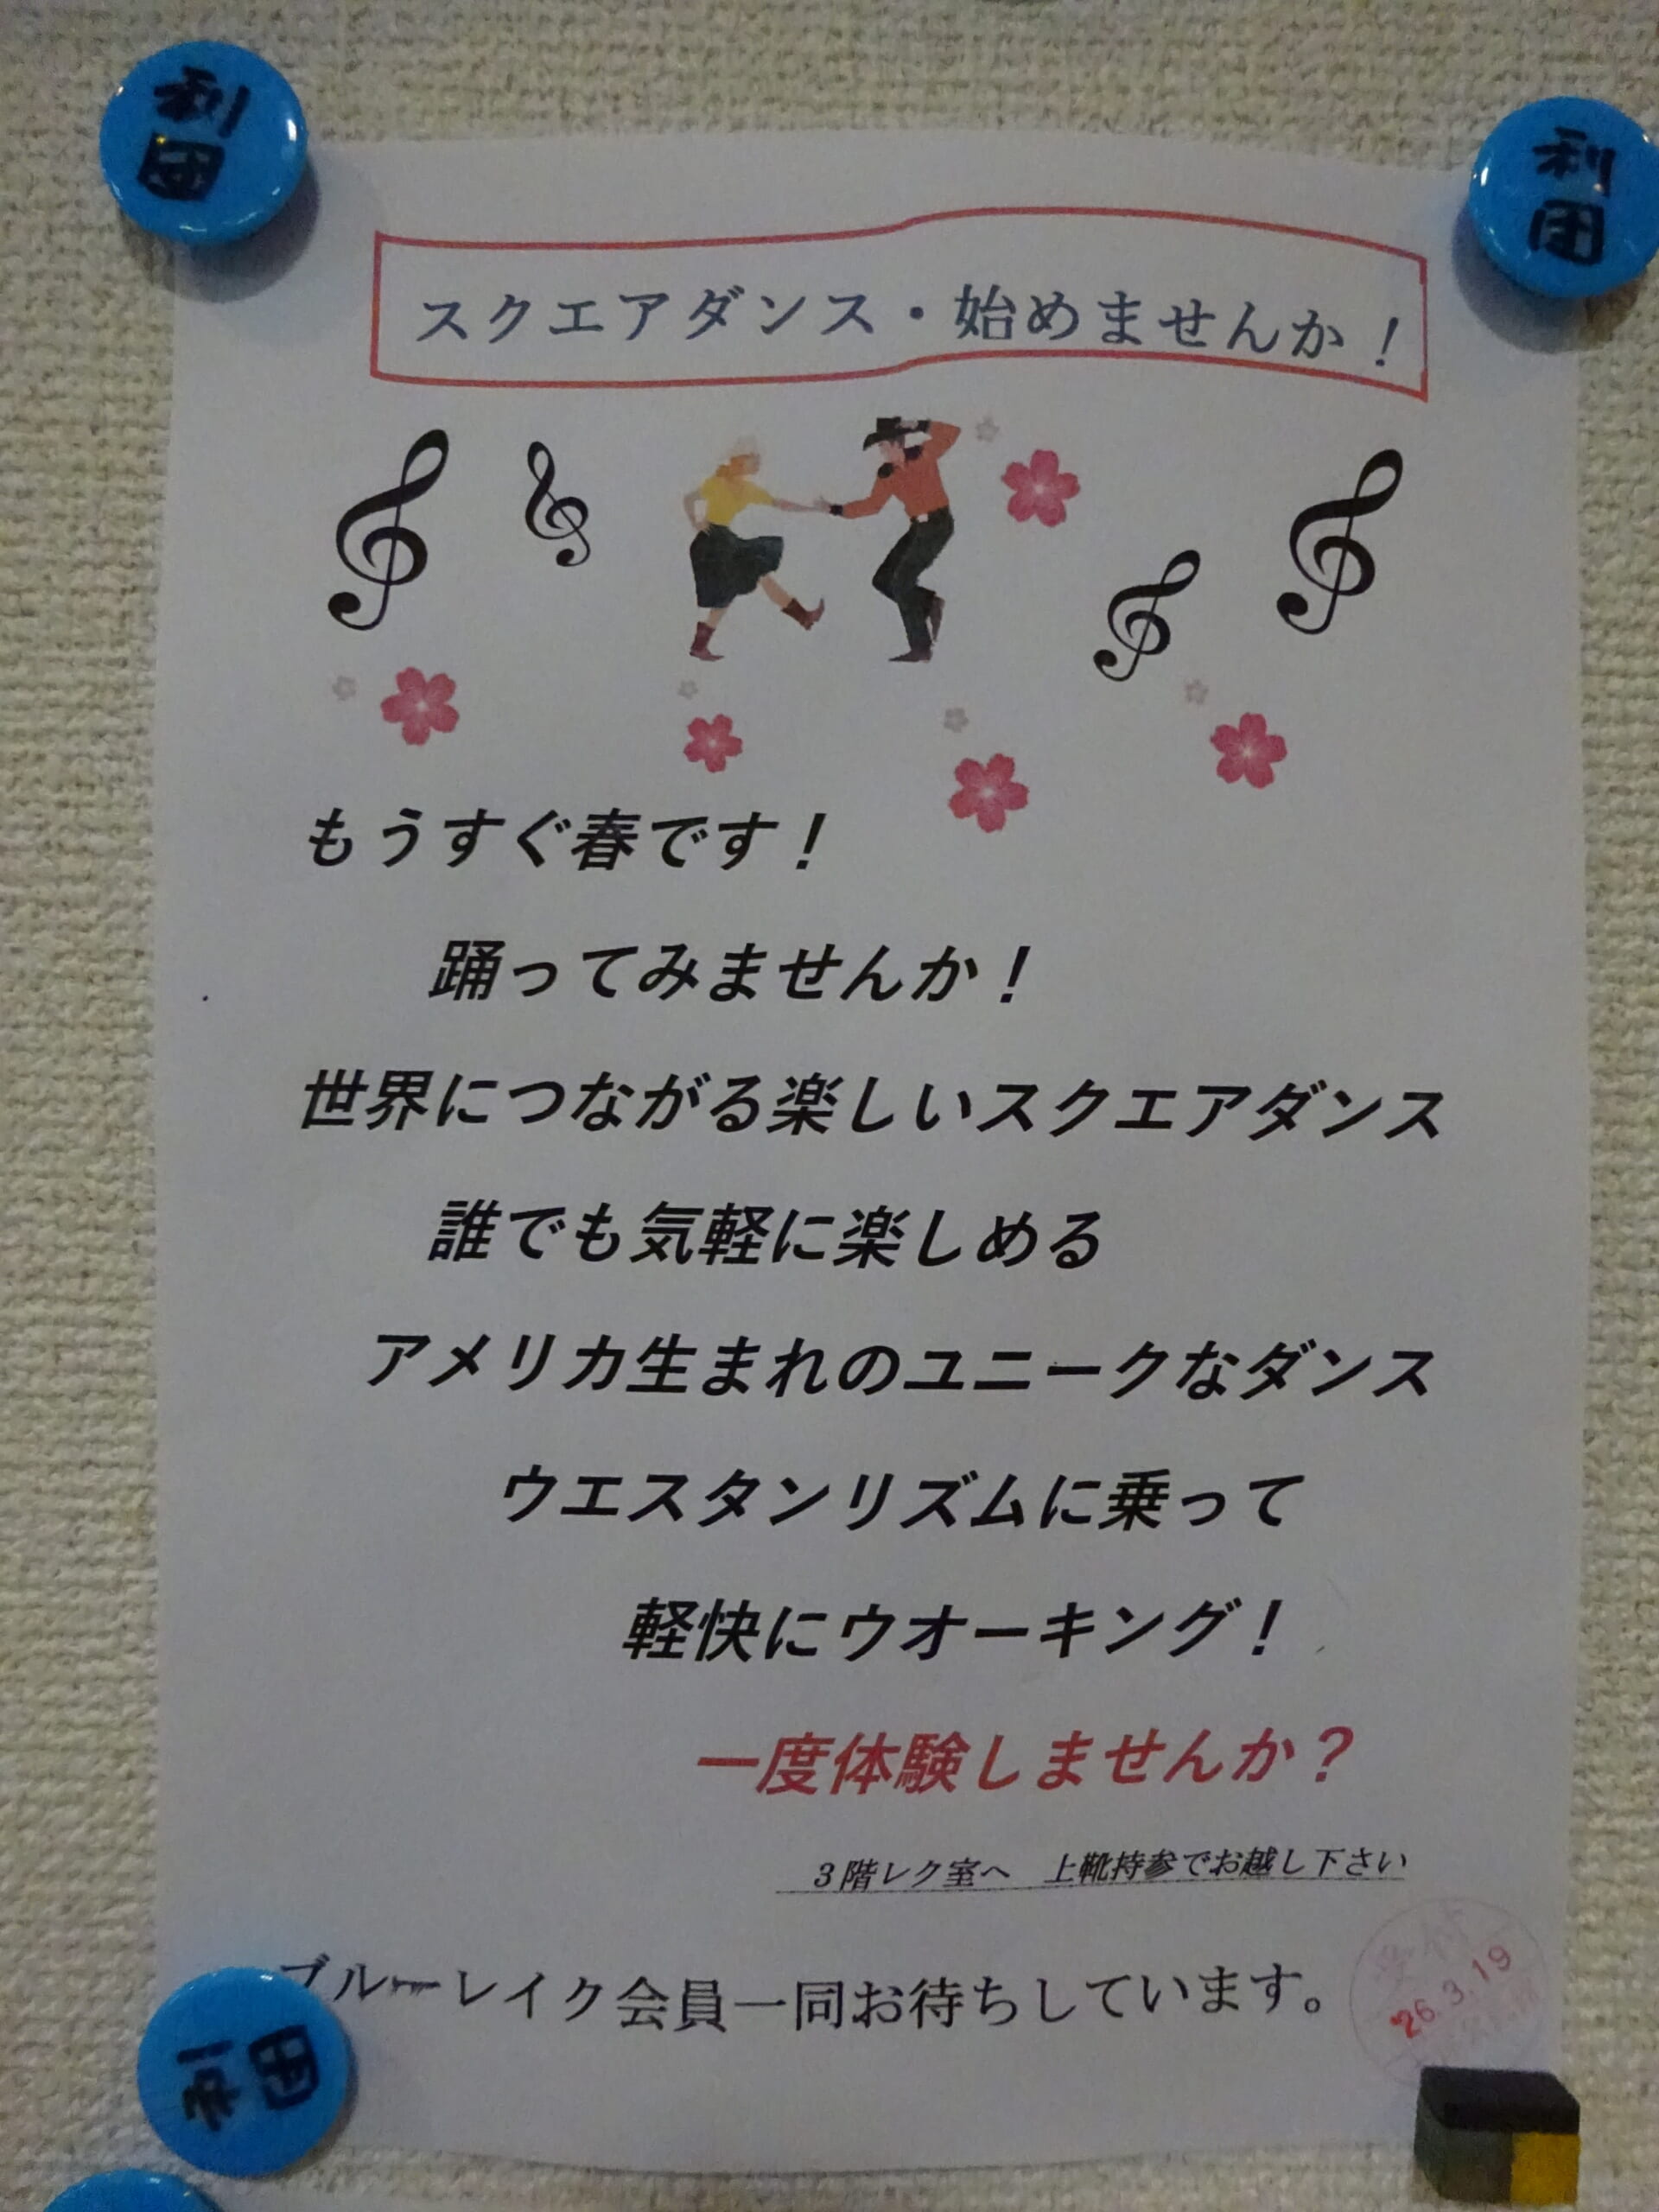 利
団
利
団
スクエアダンス・始めませんか！
もうすぐ春です！
踊ってみませんか！
世界につながる楽しいスクエアダンス
誰でも気軽に楽しめる
アメリカ生まれのユニークなダンス
ウエスタンリズムに乗って
軽快にウオーキング！
一度体験しませんか？
３階レク室へ　上靴持参でお越し下さい
ブルーレイク会員一同お待ちしています。
受付
'26.3.19
利団